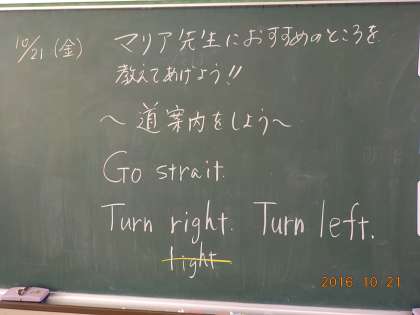 10/21(金) マリア先生におすすめのところを
教えてあげよう!!
〜道案内をしよう〜
Go strait.
Turn right. Turn left.
light
2016 10 21